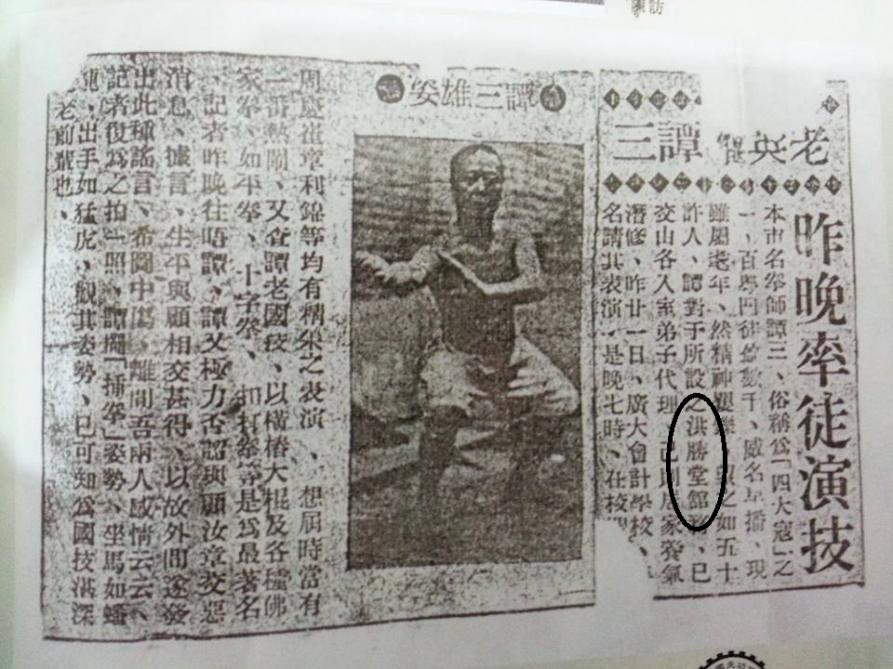 老英雄譚三
昨晚率徒演技
本市名拳師譚三、俗稱爲「四大寇」之
一、百粵門徒數千、威名早播、現
雖屬老年、然精神矍、望之如五十
許人、譚對于所設之洪勝堂館務、已
交山各入室弟子代理、己則居家養氣
潛修、昨廿一日、廣大會計學校、
名請其表演、是晚七時、在校
譚三雄姿
周慶崔章利錦等均有精采之表演、想屆時當有
一番熱鬧、又查譚老國技、以橫樁大棍及各種佛
家拳、如平拳、十字拳、扣打拳等是爲最著名
、記者昨晚往晤譚、譚又極力否認與顧汝章交惡
消息、據言、生平與顧相交甚得、以故外間遂發
出此種謠言、希圖中傷、離間吾兩人感情云云、
記者復爲之拍一照、譚擺「插拳」姿勢、坐馬如蟠
龍、出手如猛虎、觀其姿勢、已可知爲國技湛深
老前輩也、